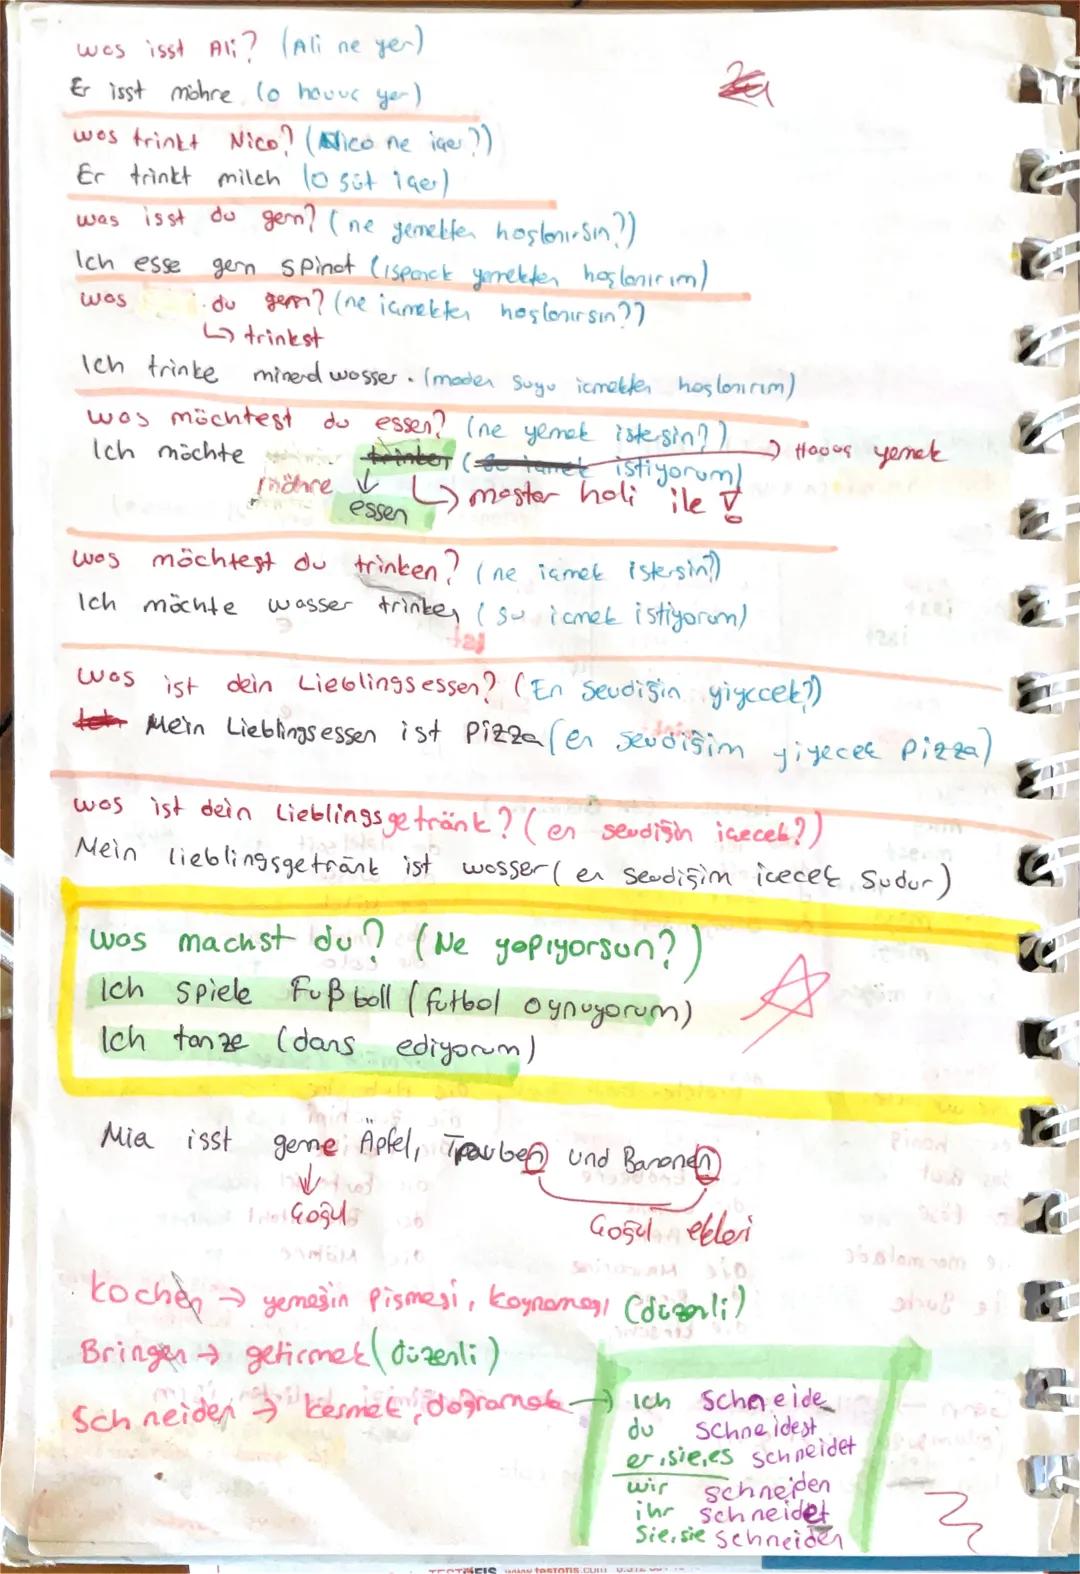 was isst Ali? (Ali ne yer)
Er isst möhre (o havuc yer)
was trinkt Nico? (Nico ne içer?)
Er trinkt milch (o süt içer)
was isst du gern? (ne yemekten hoşlanırsın?)
Ich esse gern spinat (ıspanck yemekten hoşlanırım)
was du gern? (ne içmekten hoşlanırsın??
↳ trinkst
Ich trinke mineralwasser. (maden suyu icmekten hoşlanırım)
was möchtest du essen? (ne yemek istersin?)
Ich möchte trinken (su içmek istiyorum) → Havuç yemek
möhre ↓ ↳ mastar hali ile !
essen
was möchtest du trinken? (ne içmek istersin?)
Ich möchte wasser trinken (su icmek istiyorum)
was ist dein Lieblingsessen? (En sevdiğin yiyecek?)
Ich Mein Lieblingsessen ist Pizza (en sevdiğim yiyecek Pizza)
was ist dein Lieblingsgetränk? (en sevdiğin içecek?)
Mein lieblingsgetränk ist wasser (en sevdiğim icecek Sudur)
was machst du? (Ne yapıyorsun?)
Ich spiele Fußball (futbol oynuyorum)
Ich tanze (dans ediyorum)
Mia isst gerne Äpfel, Trauben und Bananen
↓
Çoğul
Çoğul ekleri
kochen → yemeğin pişmesi, kaynaması (düzenli)
Bringen → getirmek (düzenli)
Schneiden → kesmek, doğramak → Ich schneide
du schneidest
er,sie,es schneidet
wir schneiden
ihr schneidet
Sie,sie schneiden